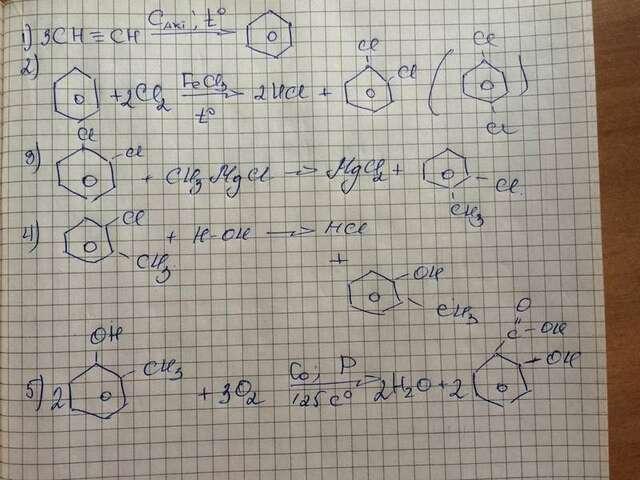 1) 3CH≡CH C акт; t°
2) + 2Cl2 FeCl3 t° 2HCl + Cl Cl ( Cl Cl )
3) Cl Cl + CH3MgCl → MgCl2 + Cl CH3
4) Cl CH3 + H-OH → HCl + OH CH3
5) 2 OH CH3 + 3O2 Co; P 125 C° 2H2O + 2 C O OH OH